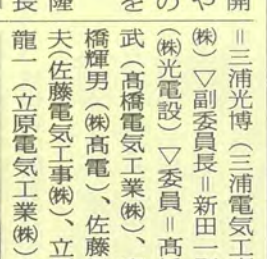 開
や
の
を
隆
長
＝三浦光博（三浦電気工
㈱）▽副委員長＝新田一
（㈱光電設）▽委員＝髙
武（髙橋電気工業㈱）、
橋輝男（㈱髙電）、佐藤
夫（佐藤電気工事㈱）、立
龍一（立原電気工業㈱）